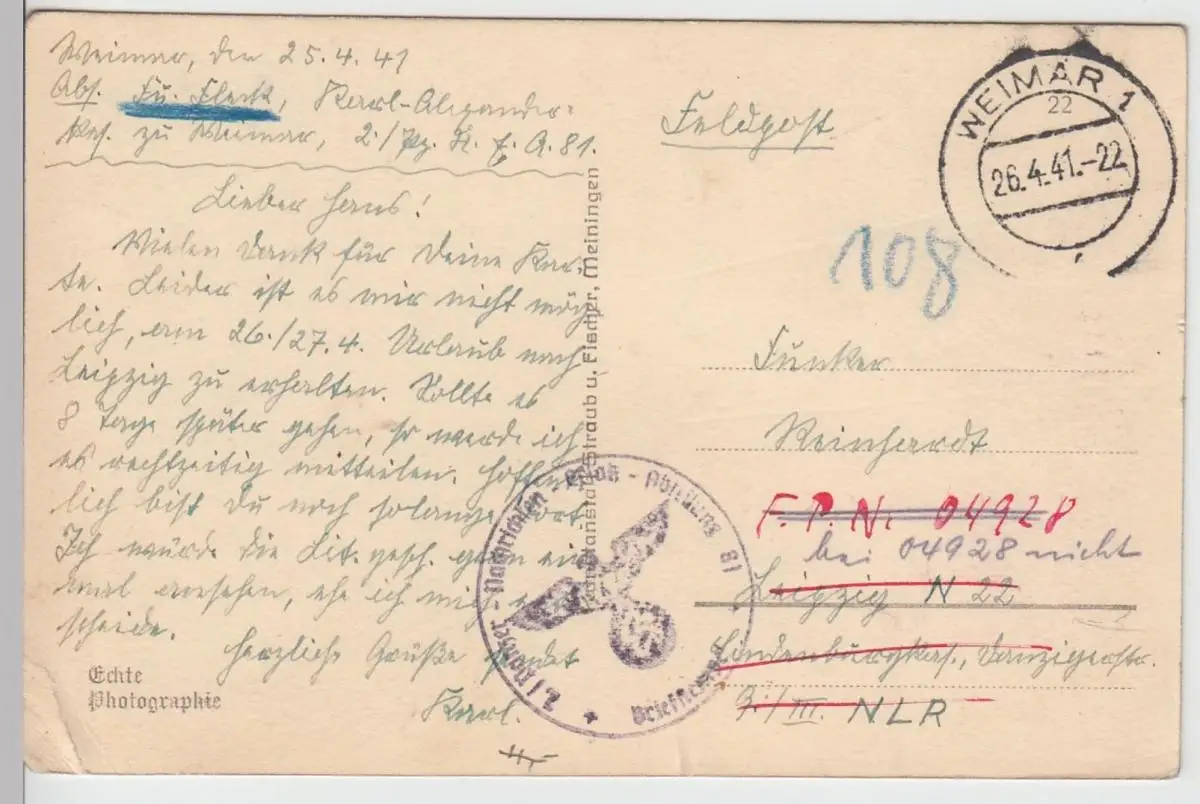 Weimar, den 25.4.41
Abs. Fu. Fleck, Karl-Alexander-
Kas. zu Weimar, 2./Pz. N. E. A. 81.
Lieber Hans!
Vielen Dank für Deine Kar-
te. Leider ist es mir nicht mög-
lich, am 26./27.4. Urlaub nach
Leipzig zu erhalten. Sollte es
8 Tage später gehen, so werde ich
es rechtzeitig mitteilen. Hoffent-
lich bist Du noch solange dort.
Ich würde die Lit. gesch. gern ein-
mal ansehen, ehe ich mich ent-
scheide.
Herzliche Grüße sendet
Karl.
Echte
Photographie
Kunstanstalt Straub u. Fischer, Meiningen
Feldpost
WEIMAR 1
22
26.4.41.-22
108
Funker
Reinhardt
F.P.N. 04928
bei 04928 nicht
Leipzig N 22
Hindenburgkas., Danzigerstr.
9./III. NLR
2./Panzer-Nachrichten-Ersatz-Abteilung 81
Briefstempel